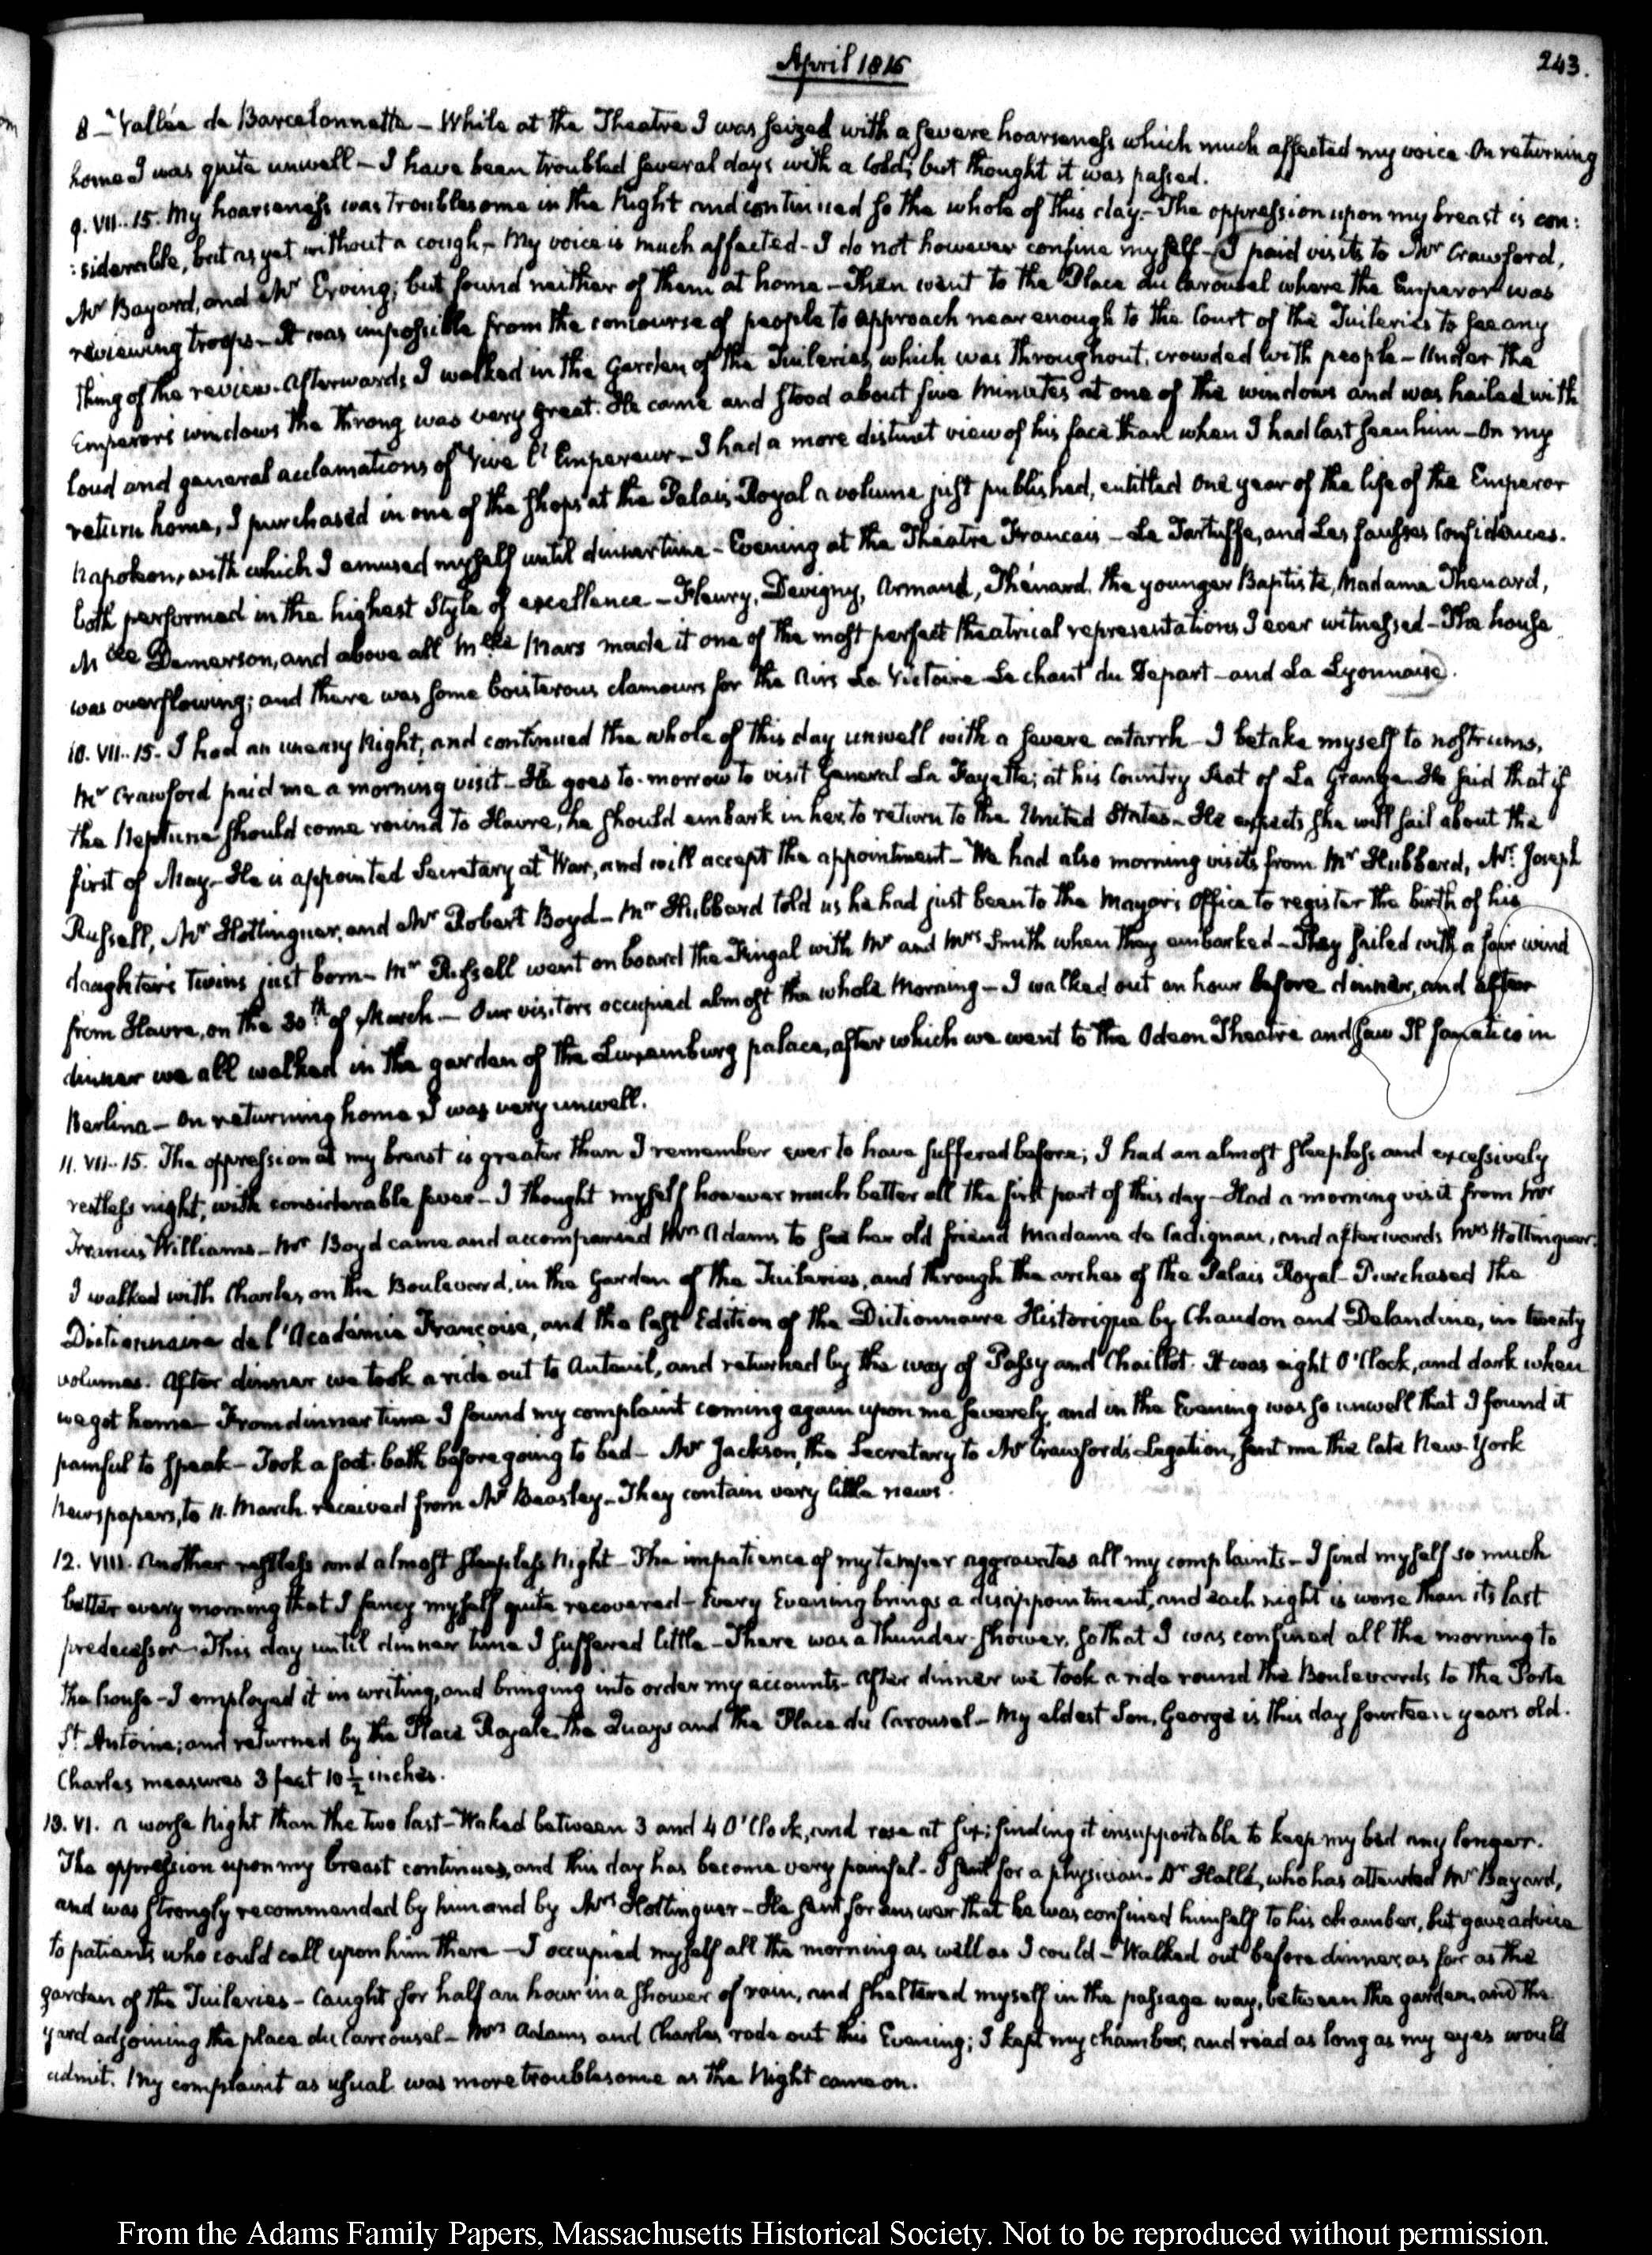 April 1815
243.
8 – Vallée de Barcelonnette – While at the Theatre I was seized with a severe hoarseness which much affected my voice. On returning
home I was quite unwell – I have been troubled several days with a cold; but thought it was passed.
9. VII..15. My hoarseness was troublesome in the Night and continued so the whole of this day. – The oppression upon my breast is con:
:siderable, but as yet without a cough – My voice is much affected – I do not however confine myself – I paid visits to Mr Crawford,
Mr Bayard, and Mr Erving; but found neither of them at home – Then went to the Place du Carousel where the Emperor was
reviewing troops – It was impossible from the concourse of people to approach near enough to the Court of the Tuileries to see any
thing of the review. Afterwards I walked in the Garden of the Tuileries, which was throughout, crowded with people – Under the
Emperor's windows the throng was very great. He came and stood about five minutes at one of the windows and was hailed with
loud and general acclamations of Vive l'Empereur – I had a more distinct view of his face than when I had last seen him – On my
return home, I purchased in one of the shops at the Palais Royal a volume just published, entitled One year of the life of the Emperor
Napoleon, with which I amused myself until dinner time – Evening at the Théatre Francais – Le Tartuffe, and Les fausses Confidences.
both performed in the highest Style of excellence – Fleury, Devigny, Armand, Thénard, the younger Baptiste, Madame Thenard,
Mlle Demerson, and above all Mlle Mars made it one of the most perfect theatrical representations I ever witnessed – The house
was overflowing; and there was some boisterous clamours for the Airs La Victoire – Le chant du Depart – and La Lyonnaise.
10. VII..15. I had an uneasy Night; and continued the whole of this day unwell with a severe catarrh – I betake myself to nostrums.
Mr Crawford paid me a morning visit – He goes to-morrow to visit General La Fayette; at his Country Seat of La Grange. He said that if
the Neptune should come round to Havre, he should embark in her, to return to the United States – He expects she will sail about the
first of May – He is appointed Secretary at War, and will accept the appointment – We had also morning visits from Mr Hubbard, Mr Joseph
Russell, Mr Hottinguer, and Mr Robert Boyd – Mr Hubbard told us he had just been to the Mayor's Office to register the birth of his
daughter's twins just born – Mr Russell went on board the Fingal with Mr and Mrs Smith when they embarked – They sailed with a fair wind
from Havre, on the 30th of March – Our visitors occupied almost the whole Morning – I walked out an hour before dinner, and after
dinner we all walked in the garden of the Luxemburg palace, after which we went to the Odeon Theatre and saw Il fanatico in
Berlina – On returning home I was very unwell.
11. VII..15. The oppression at my breast is greater than I remember ever to have suffered before; I had an almost sleepless and excessively
restless night, with considerable fever – I thought myself however much better all the first part of this day – Had a morning visit from Mr
Francis Williams – Mr Boyd came and accompanied Mrs Adams to see her old friend Madame de Cadignan, and afterwards Mrs Hottinguer.
I walked with Charles, on the Boulevard, in the Garden of the Tuileries, and through the arches of the Palais Royal – Purchased the
Dictionnaire de l'Académie Françoise, and the last Edition of the Dictionnaire Historique by Chaudon and Delandine, in twenty
volumes. After dinner we took a ride out to Auteuil, and returned by the way of Passy and Chaillot. It was eight O'Clock, and dark when
we got home – From dinner time I found my complaint coming again upon me severely, and in the Evening was so unwell that I found it
painful to speak – Took a foot-bath before going to bed – Mr Jackson, the Secretary to Mr Crawford's Legation, sent me the late New-York
Newspapers, to 11. March received from Mr Beasley – They contain very little news.
12. VIII. Another restless and almost sleepless Night – The impatience of my temper aggravates all my complaints – I find myself so much
better every morning that I fancy myself quite recovered – Every Evening brings a disappointment, and each night is worse than its last
predecessor – This day until dinner time I suffered little – There was a thunder-shower, so that I was confined all the morning to
the house – I employed it in writing, and bringing into order my accounts – After dinner we took a ride round the Boulevards to the Porte
St Antoine; and returned by the Place Royale, the Quays and the Place du Carousel – My eldest Son, George is this day fourteen years old.
Charles measures 3 feet 10 1/2 inches.
13. VI. A worse Night than the two last – Waked between 3 and 4 O'Clock, and rose at six; finding it insupportable to keep my bed any longer.
The oppression upon my breast continues, and this day has become very painful – I sent for a physician – Dr Hallé, who has attended Mr Bayard,
and was strongly recommended by him and by Mrs Hottinguer – He sent for answer that he was confined himself to his chamber, but gave advice
to patients who could call upon him there – I occupied myself all the morning as well as I could – Walked out before dinner, as far as the
garden of the Tuileries – Caught for half an hour in a shower of rain, and sheltered myself in the passage way, between the garden, and the
yard adjoining the place du Carrousel – Mrs Adams and Charles rode out this Evening; I kept my chamber, and read as long as my eyes would
admit. My complaint as usual was more troublesome as the Night came on.
From the Adams Family Papers, Massachusetts Historical Society. Not to be reproduced without permission.